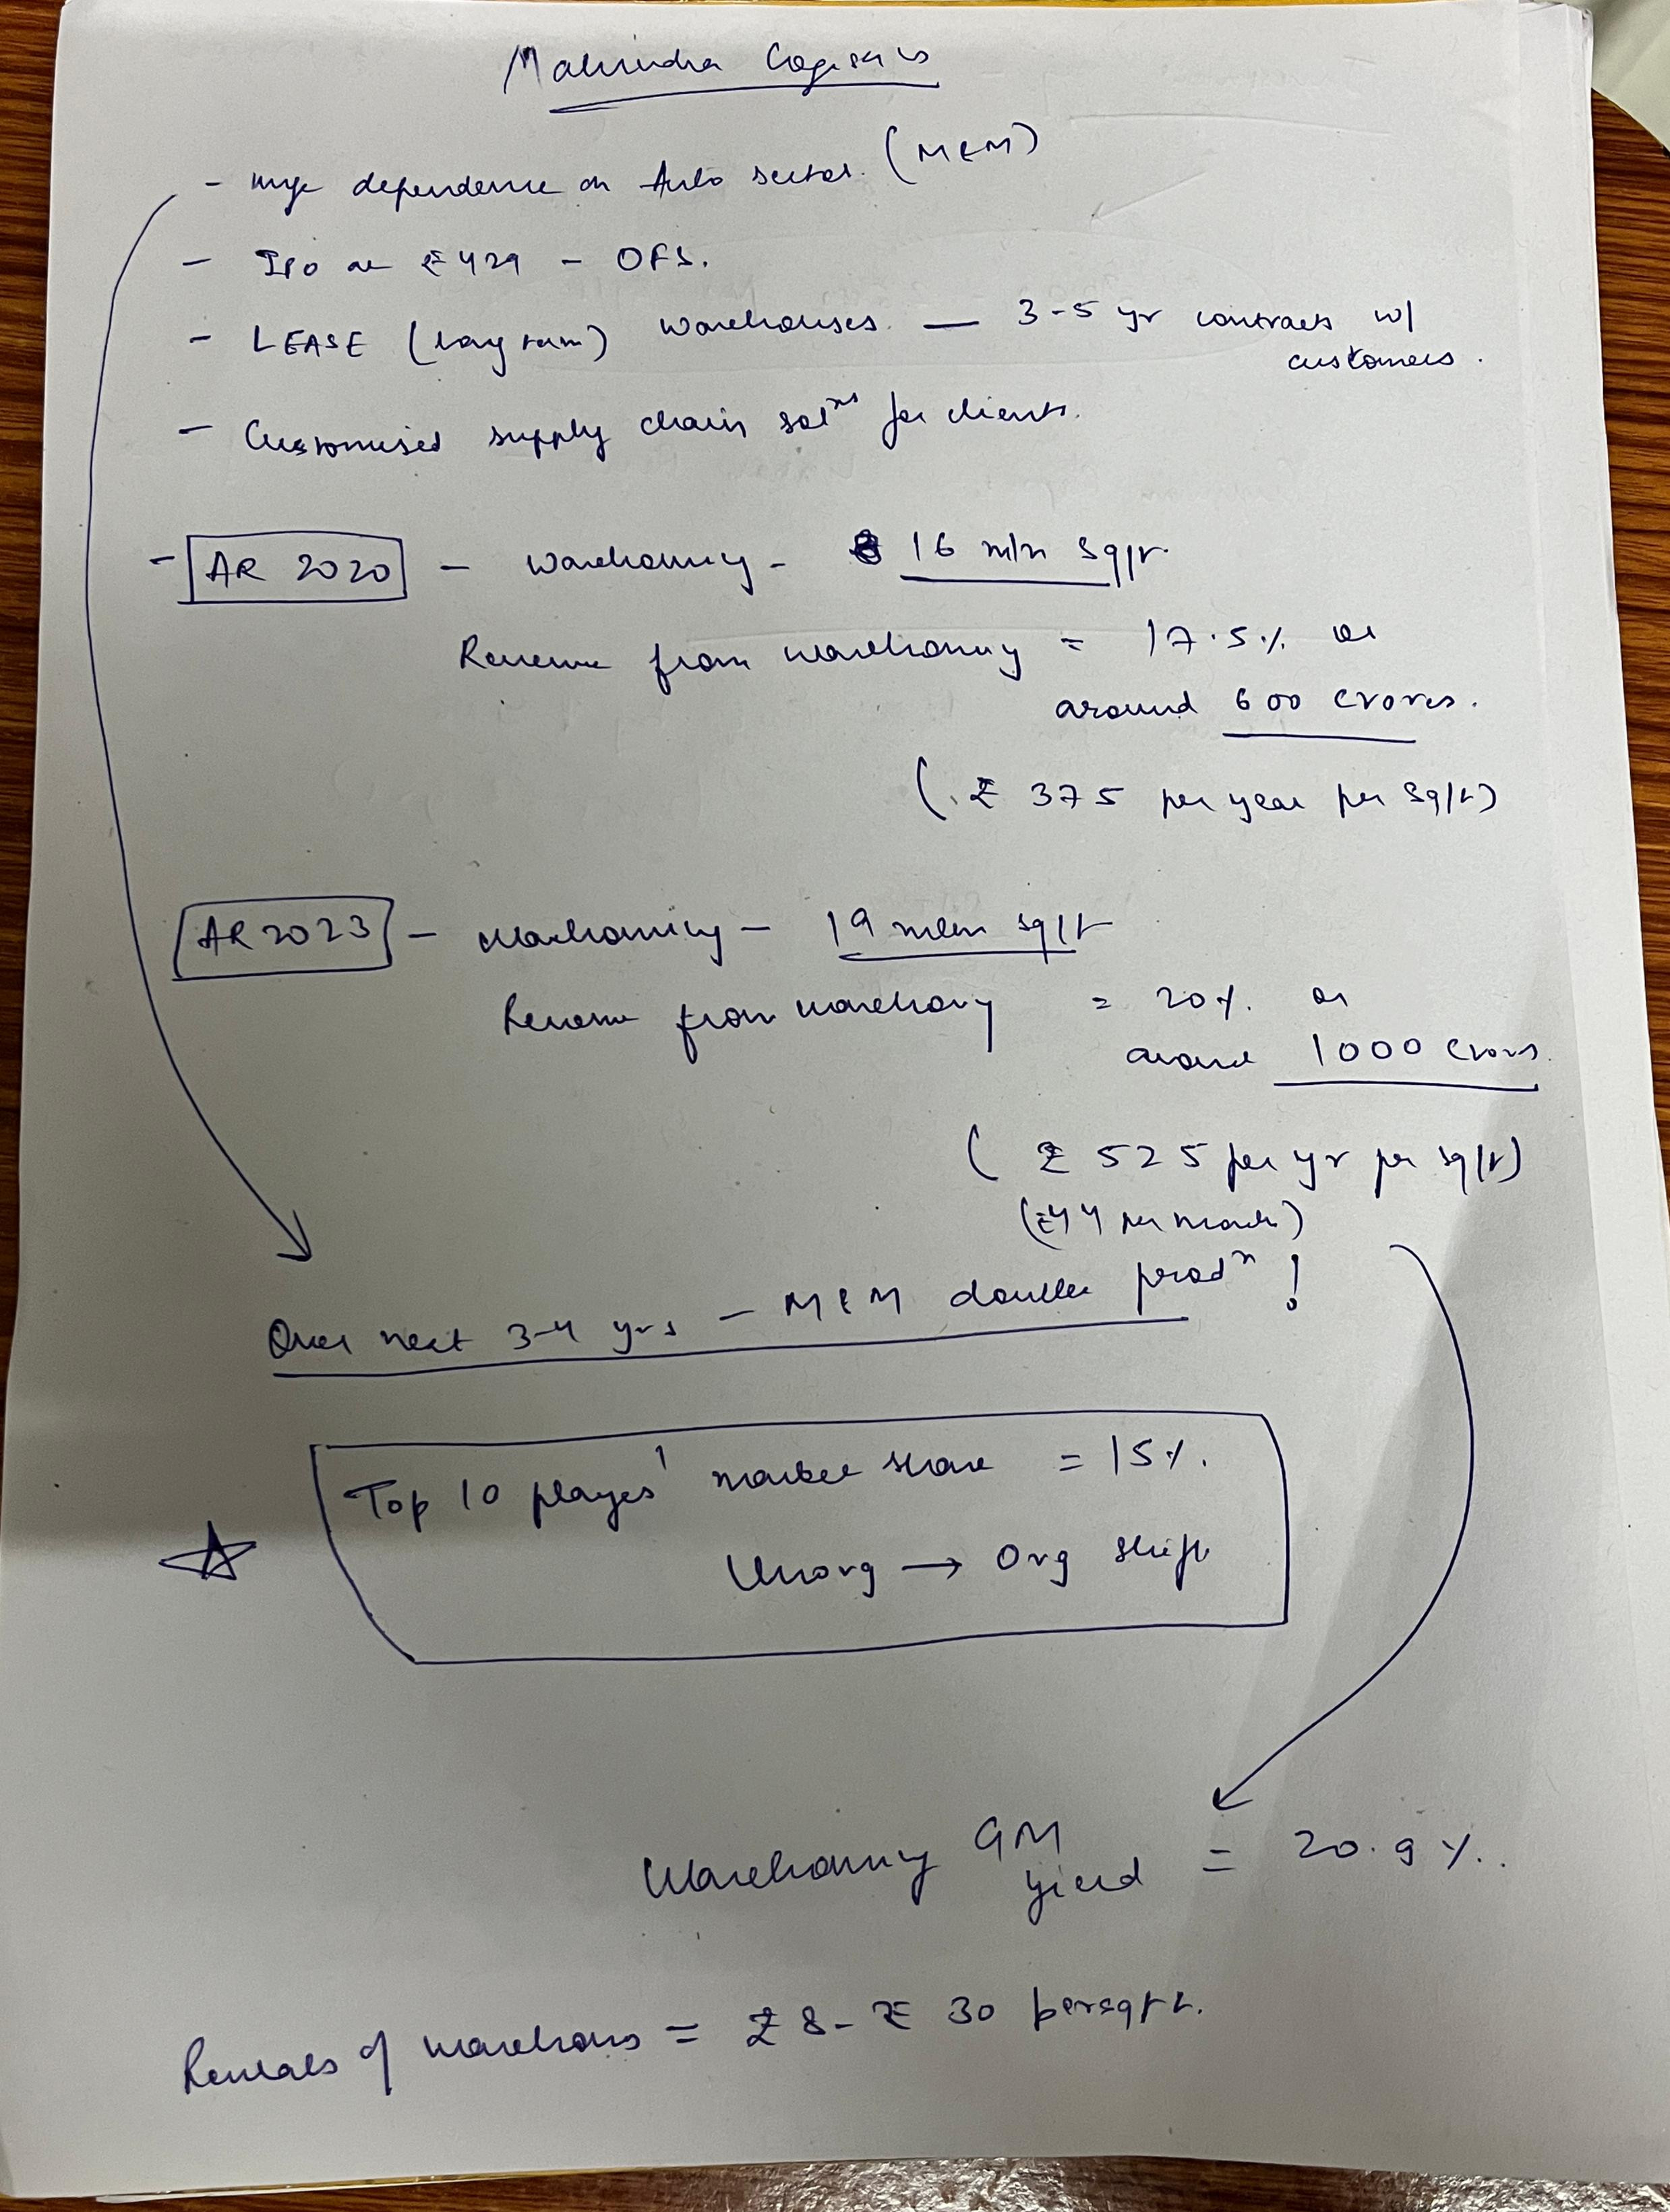 Mahindra Logistics
- Huge dependence on Auto sector. (M&M)
- IPO at ₹429 - OFS.
- LEASE (long term) warehouses — 3-5 yr contracts w/
customers.
- Customised supply chain solⁿˢ for clients.
- AR 2020 - Warehousing - 16 mln sqft
Revenue from warehousing = 17.5% or
around 600 crores.
(₹ 375 per year per sqft)
AR 2023 - Warehousing - 19 mln sqft
Revenue from warehousing = 20% or
around 1000 crores.
(₹ 525 per yr per sqft)
(₹44 per month)
Over next 3-4 yrs - M&M double prodⁿ!
Top 10 players' market share = 15%.
Unorg → Org shift
Warehousing GM
yield = 20.9%.
Rentals of warehouses = ₹ 8 - ₹ 30 per sqft.